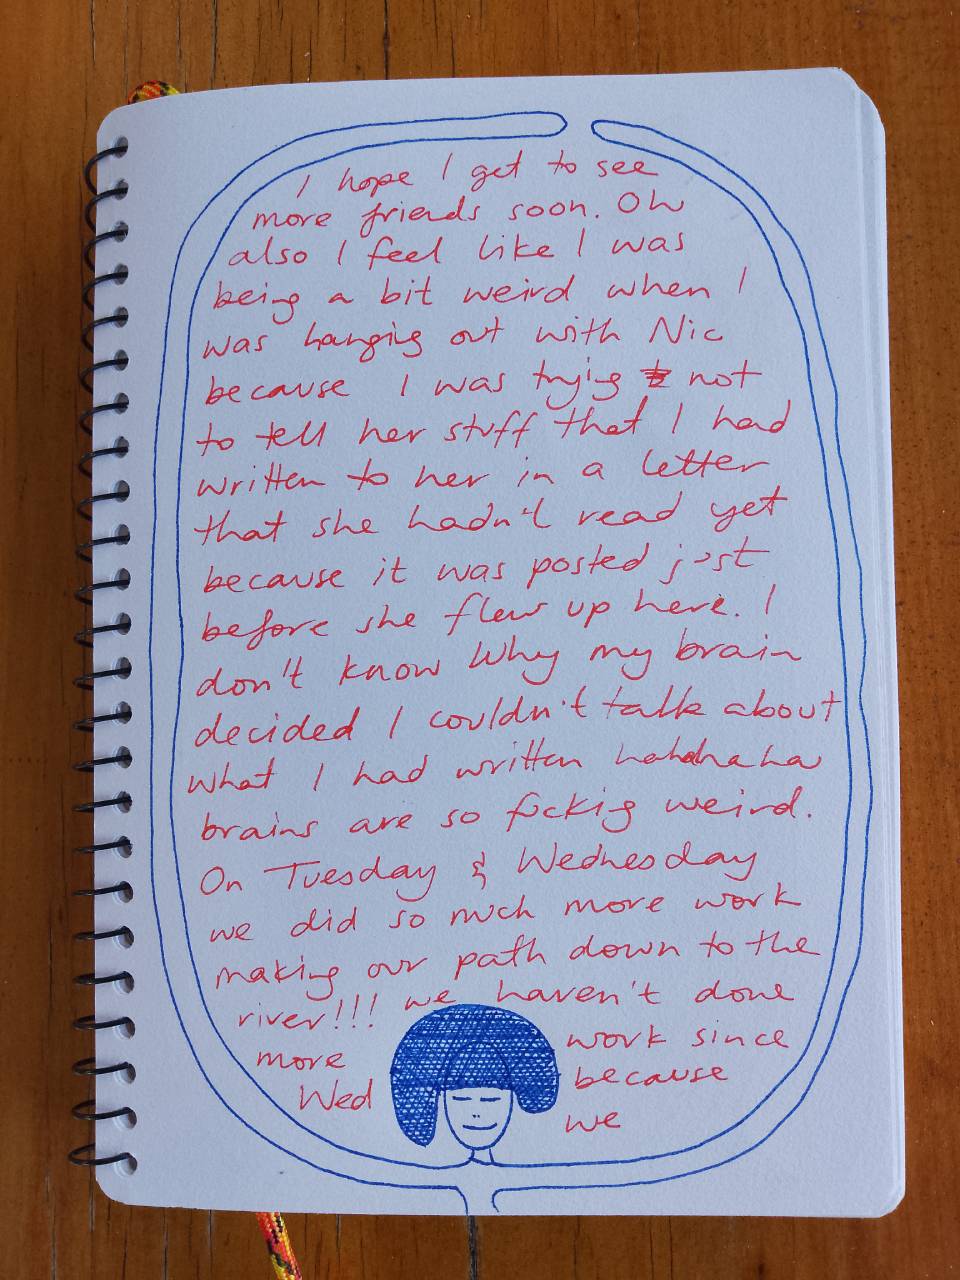 I hope I get to see
more friends soon. Oh
also I feel like I was
being a bit weird when I
was hanging out with Nic
because I was trying to not
to tell her stuff that I had
written to her in a letter
that she hadn't read yet
because it was posted just
before she flew up here. I
don't know why my brain
decided I couldn't talk about
what I had written hahahaha
brains are so fucking weird.
On Tuesday & Wednesday
we did so much more work
making our path down to the
river!!! we haven't done
more work since
Wed because
we